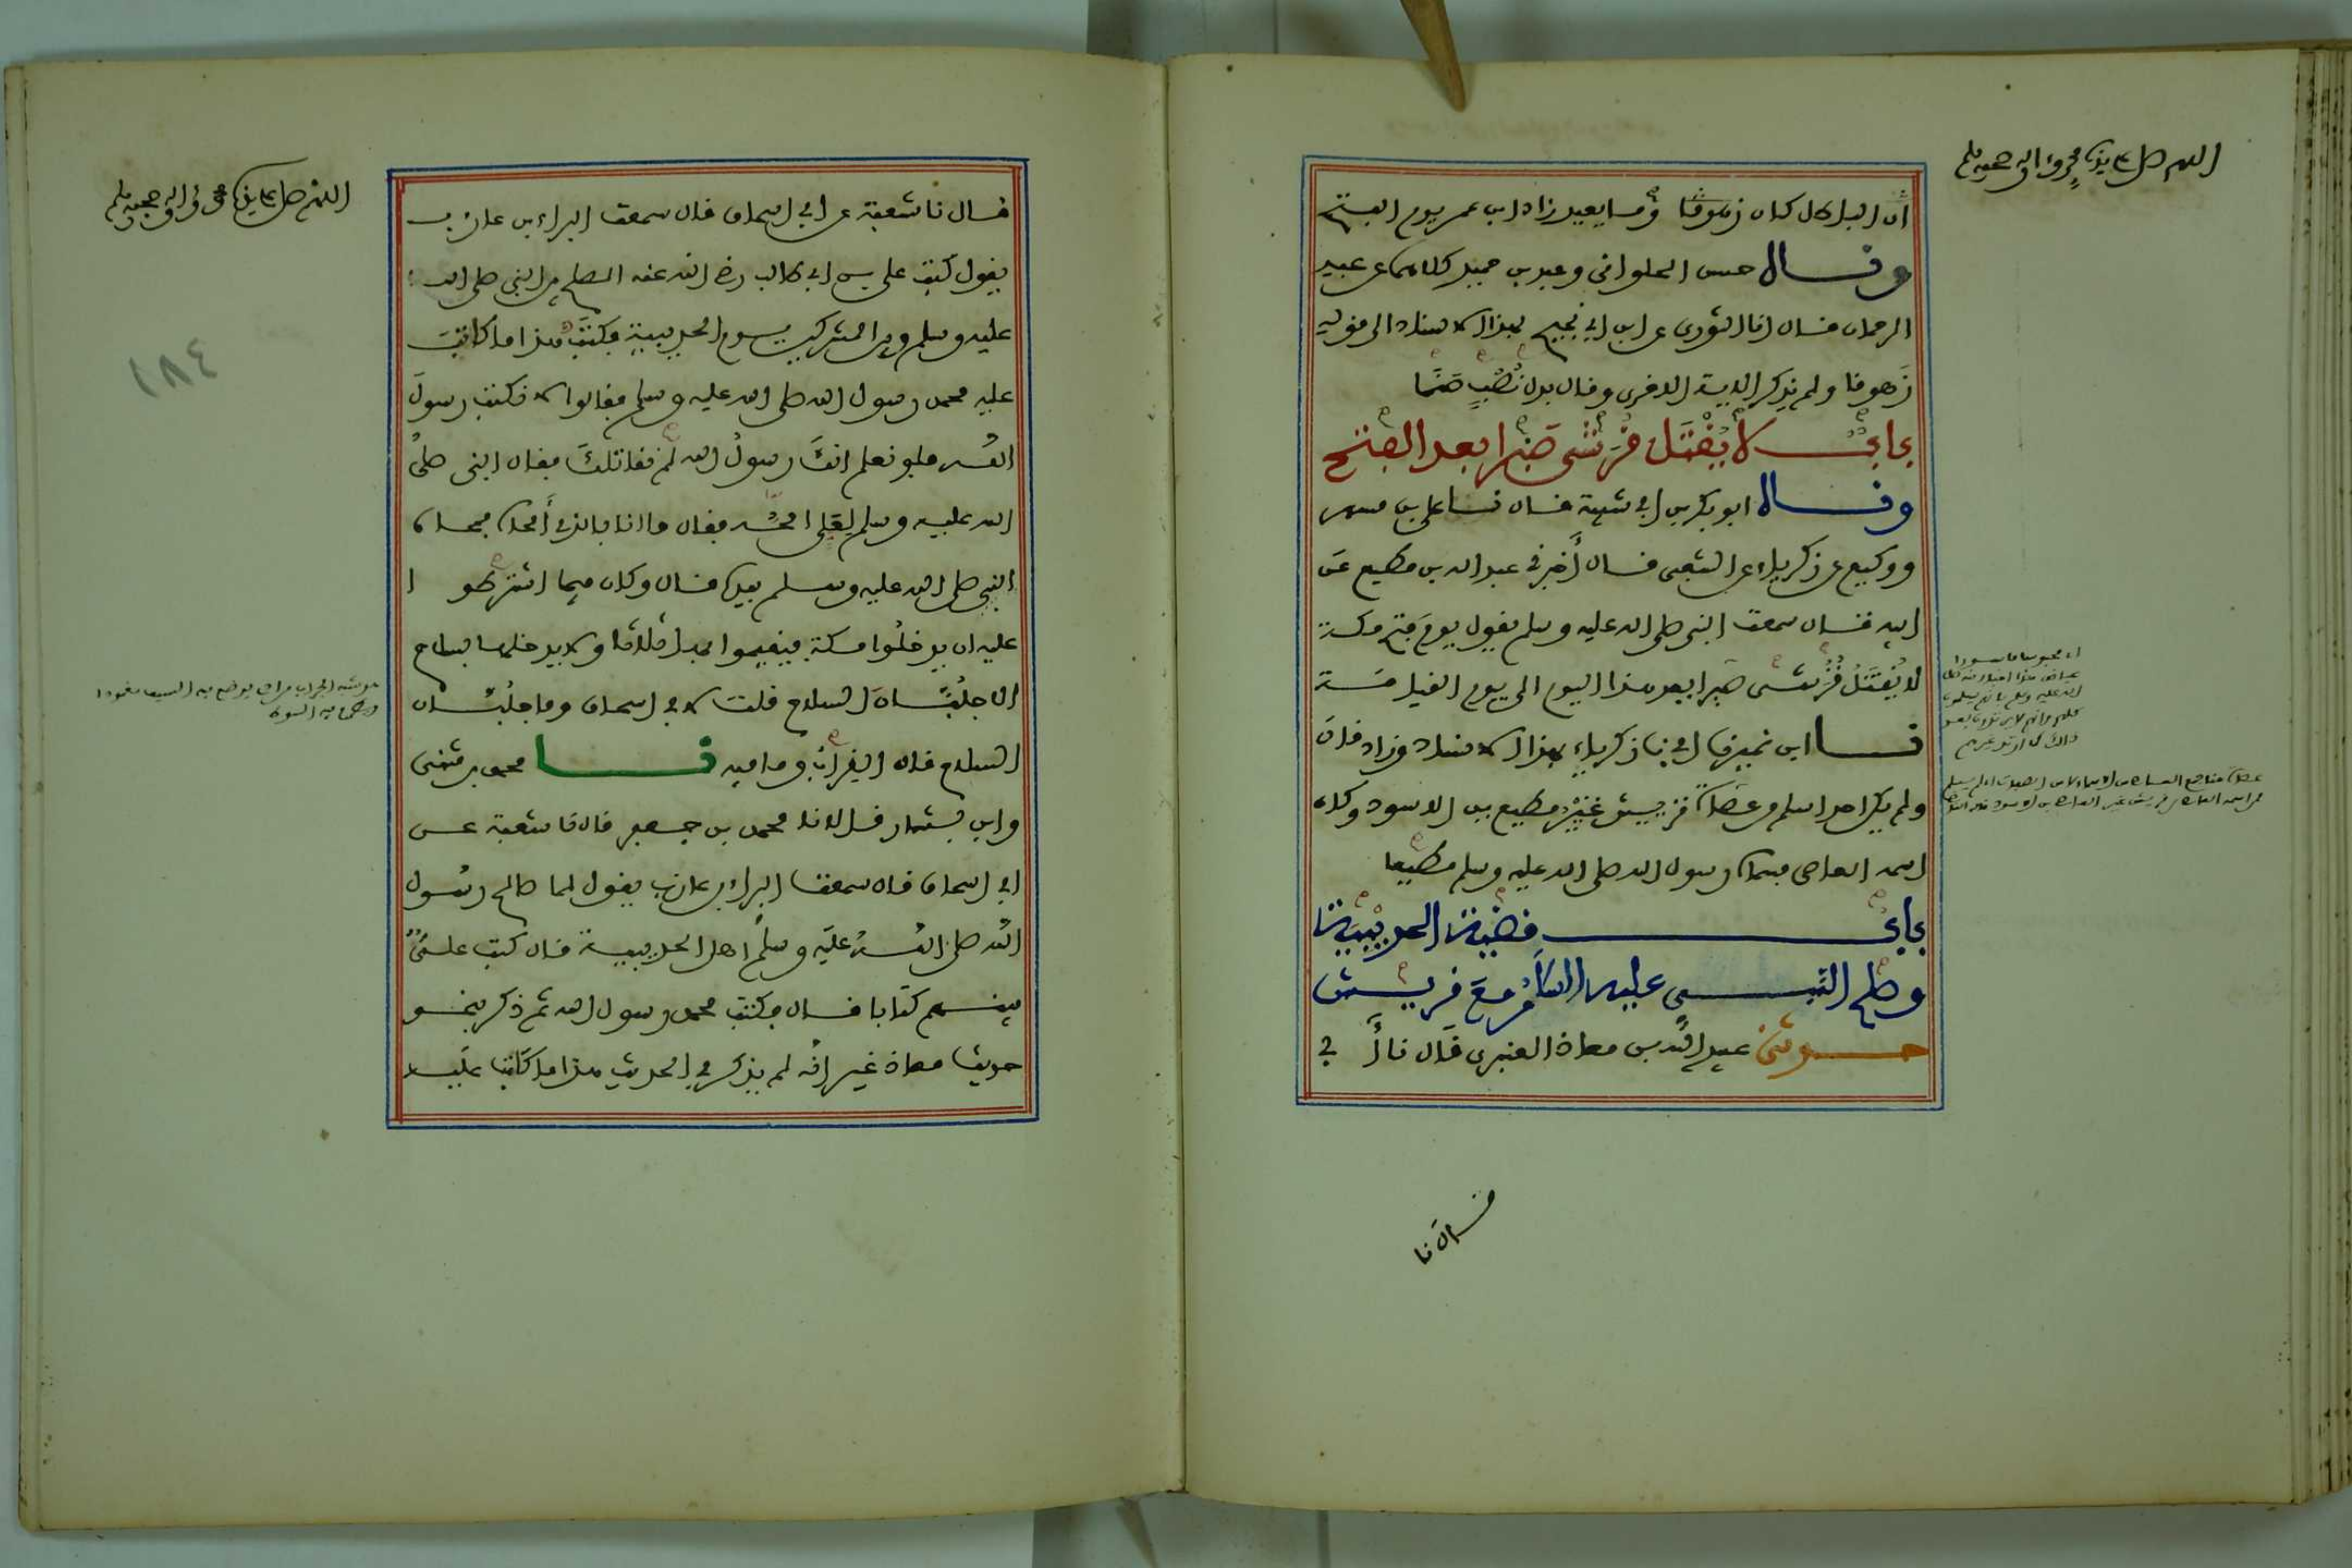 اللهم صل على سيدنا محمد وءاله وصحبه وسلم
ان الباطل كان زهوقا وما يعيد زاد ابن عمر يوم الفتح
وقال حسن الحلواني وعبد بن حميد كلاهما عن عبد
الرحمان قال انا الثوري عن ابن ابي نجيح بهذا الاسناد الى قوله
زَهوقا ولم يذكر الاية الاخرى وقال بدل نُصُبٍ صنمًا
بابٌ لا يُقْتَل قُرَشي صَبرا بعد الفتح
وقال ابو بكر بن ابي شيبة قال نا علي بن مسهر
ووكيع عن زكرياء عن الشعبي قال أخبرني عبد الله بن مطيع عن
ابيه قال سمعت النبي صلى الله عليه وسلم يقول يومَ فتح مكة
لا يُقتَلُ قُرَشي صَبرا بعد هذا اليوم الى يوم القيامة
نا ابن نمير نا ابي نا زكرياء بهذا الاسناد وزاد قال
ولم يكن احد اسلم من عصاة قريش غيرُ مطيع بن الاسود وكان
اسمه العاصي فسماه رسول الله صلى الله عليه وسلم مطيعا
بابُ قضية الحديبية
وصلح النبي عليه السلام مع قريش
حدثني عبيد الله بن معاذ العنبري قال نا أبي
قال نا
اللهم صل على سيدنا محمد وءاله وصحبه وسلم
قال نا شعبة عن ابي اسحاق قال سمعت البراء بن عازب
يقول كتب علي بن ابي طالب رضي الله عنه الصلح بين النبي صلى الله
عليه وسلم وبين المشركين يوم الحديبية فكتب هذا ما كاتب
عليه محمد رسول الله صلى الله عليه وسلم فقالوا لا تكتب رسولَ
الله فلو نعلم انك رسولُ الله لم نقاتلك فقال النبي صلى
الله عليه وسلم لعلي امحه فقال ما انا بالذي أمحاه فمحاه
النبي صلى الله عليه وسلم بيده قال وكان فيما اشترطوا
عليه ان يدخلوا مكة فيقيموا بها ثلاثا ولا يدخلها بسلاح
الا جلبّان السلاح قلت لابي اسحاق وما جلبّان
السلاح قال القراب وما فيه نا محمد بن مثنى
وابن بشار قالا نا محمد بن جعفر قال نا شعبة عن
ابي اسحاق قال سمعت البراء بن عازب يقول لما صالح رسول
الله صلى الله عليه وسلم اهل الحديبية قال كتب عليٌّ
بينهم كتابا قال فكتب محمد رسول الله ثم ذكر بنحو
حديث معاذ غير انه لم يذكر في الحديث هذا ما كاتب عليه
١٨٤